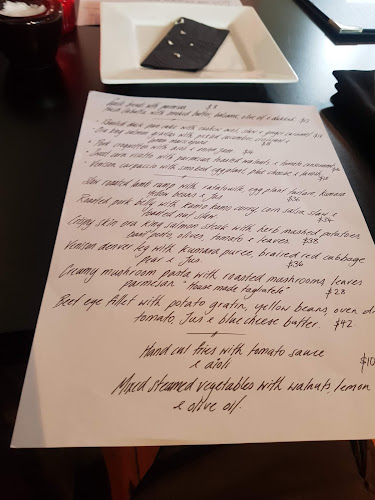 bread with parmesan $8
with smoked butter, balsamic, olive oil & dukkah
Roasted duck pancake with cashew and & ginger caramel
Ora king salmon gravlax with pickled cucumber &
lemon mascarpone
Pork croquettes with & onion jam
Sweet corn risotto with parmesan toasted walnuts & tomato
Venison carpaccio with smoked eggplant, feta cheese &
Slow roasted lamb rump with ratatouille, egg plant kumara
yellow beans & Jus $36
Roasted pork belly with kumo kumo curry, corn salsa, slaw &
toasted
Crispy skin ora king salmon steak with herb mashed potatoes
pesto, olives, tomato & leaves. $38
Venison denver leg with kumara puree, braised red cabbage
pear & Jus. $36
Creamy mushroom pasta with roasted mushrooms, leaves
parmesan "House made tagliatele" $28
Beef eye fillet with potato gratin, yellow beans, oven
tomato, Jus & blue cheese butter. $42
Hand cut fries with tomato sauce
& aioli $10
Mixed steamed vegetables with walnuts, lemon
& olive oil.